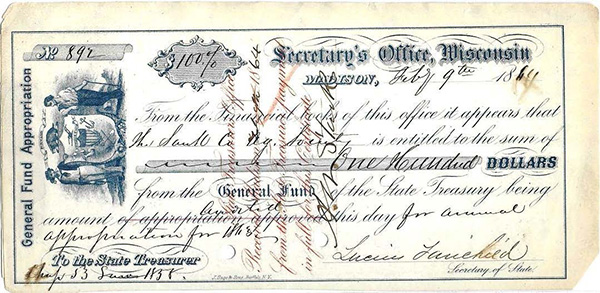 No 892
$100 00/100
Secretary's Office, Wisconsin
MADISON, Feby 9th 1864
General Fund Appropriation
From the Financial books of this office it appears that
The Sauk Co Ag. Soc. is entitled to the sum of
One Hundred DOLLARS
from the General Fund of the State Treasury being
amount of appropriation audited this day for annual
appropriation for 1863.
To the State Treasurer
Lucius Fairchild
Secretary of State.
Chap 53 1858.
1864